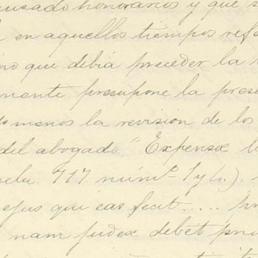 usado honorarios y que s
en aquellos tiempos ref
no que debia preceder la
nente presupone la pres
menos la revision de los
del abogado" Expensæ l
717 num.º 1 y
ejus qui eas fecit.... pr
nam judex debet pri